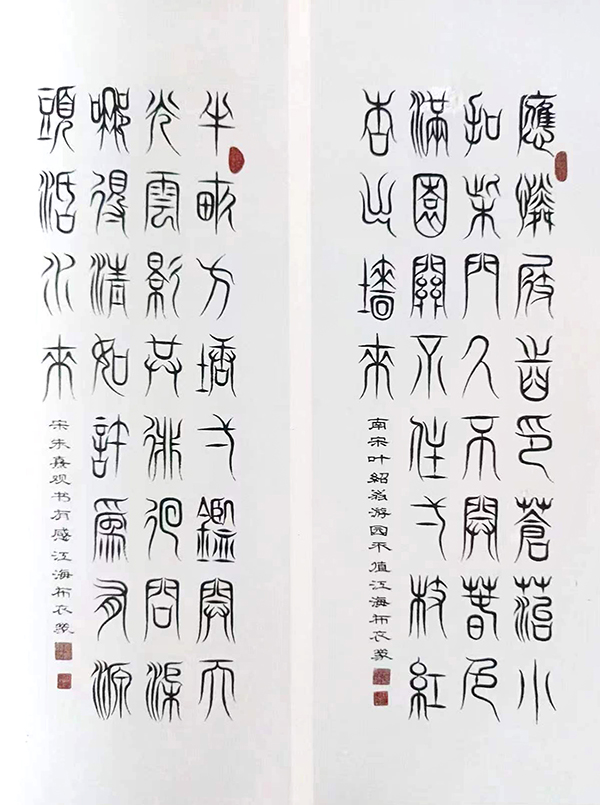 應憐屐齒印蒼苔小
扣柴門久不開春色
滿園關不住弌枝紅
杏出墻來
南宋叶紹翁游园不值江海布衣篆
半畝方塘弌鑑開天
光雲影共徘徊問渠
哪得清如許為有源
頭活水來
宋朱熹观书有感江海布衣篆